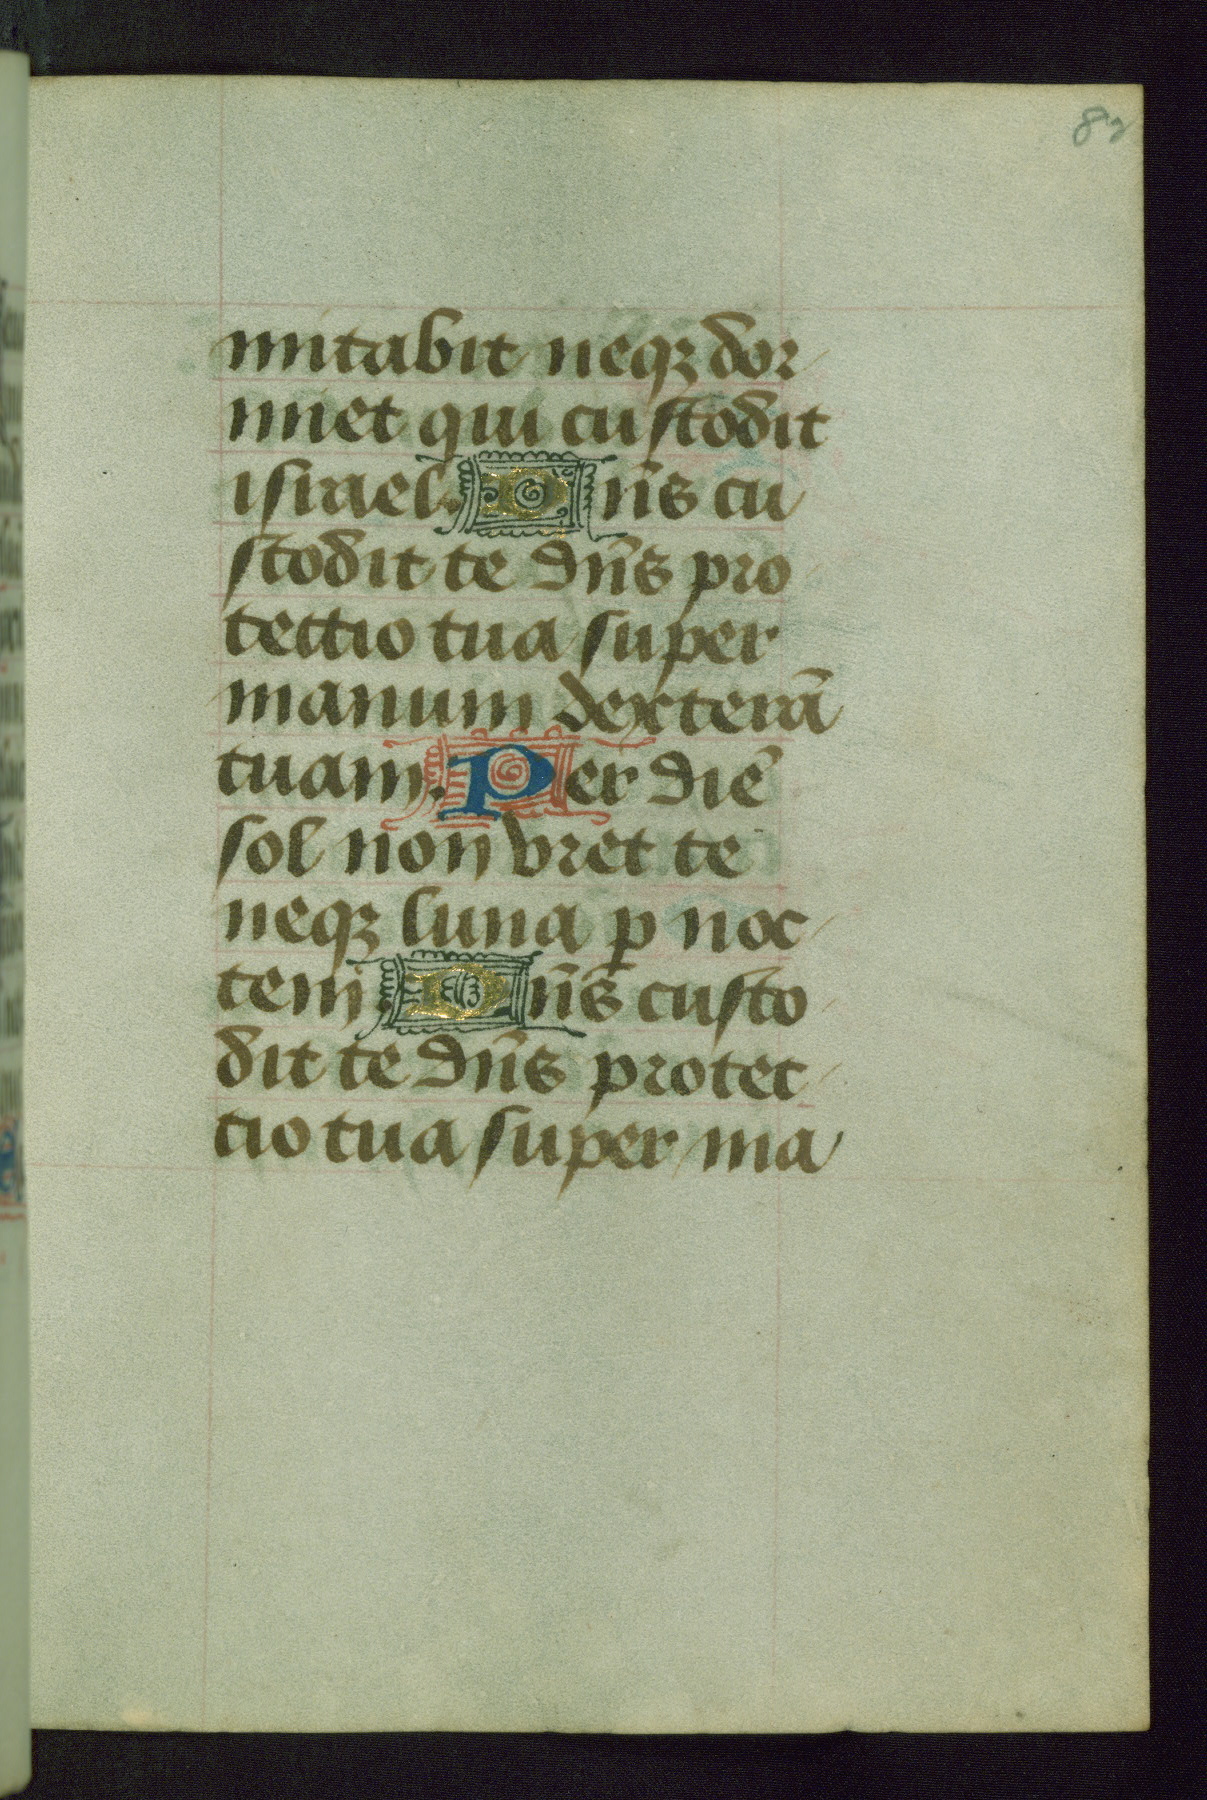 82
mitabit neqꝫ dor
miet qui custodit
israel. Dn̄s cu
stodit te dn̄s pro
tectio tua super
manum dexterā
tuam. Per diē
sol non vret te
neqꝫ luna ꝑ noc
tem. Dn̄s custo
dit te dn̄s protec
tio tua super ma